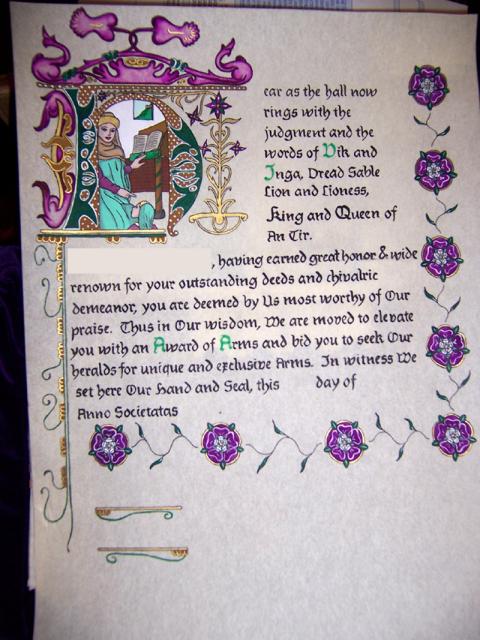 ear as the hall now
rings with the
judgment and the
words of Vik and
Inga, Dread Sable
Lion and Lioness,
King and Queen of
An Tir.
, having earned great honor & wide
renown for your outstanding deeds and chivalric
demeanor, you are deemed by Us most worthy of Our
praise. Thus in Our wisdom, We are moved to elevate
you with an Award of Arms and bid you to seek Our
heralds for unique and exclusive Arms. In witness We
set here Our Hand and Seal, this day of
Anno Societatas